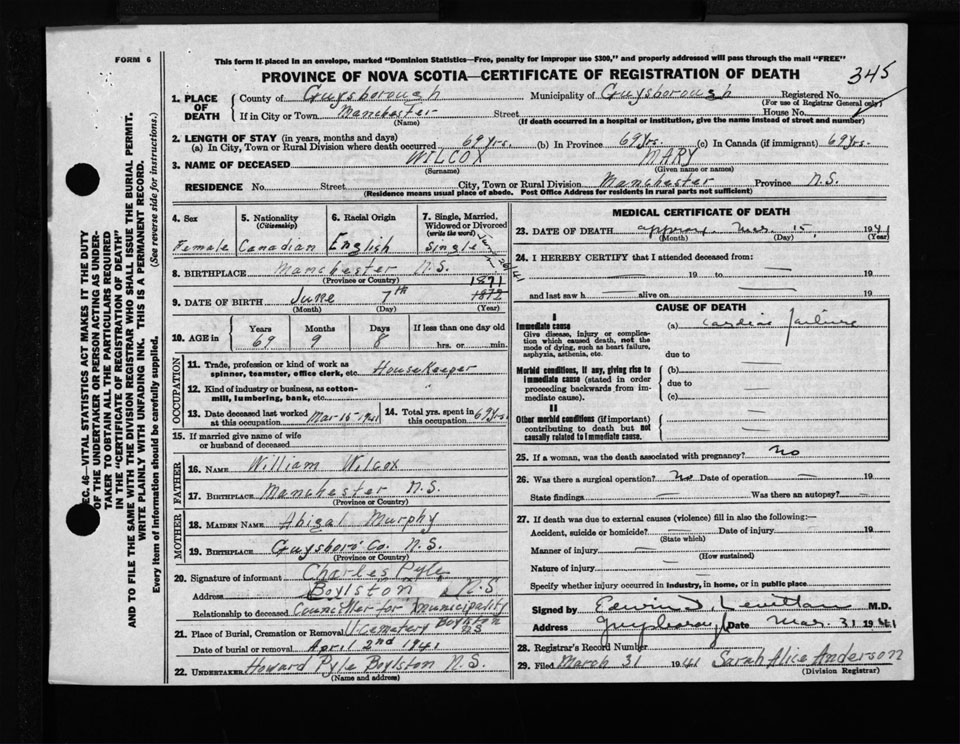 FORM 6
This form if placed in an envelope, marked "Dominion Statistics—Free, penalty for improper use $300," and properly addressed will pass through the mail "FREE"
PROVINCE OF NOVA SCOTIA—CERTIFICATE OF REGISTRATION OF DEATH
345
1. PLACE OF DEATH
County of Guysborough Municipality of Guysborough Registered No.
(For use of Registrar General only)
If in City or Town Manchester Street House No.
(Name) (If death occurred in a hospital or institution, give the name instead of street and number)
2. LENGTH OF STAY (in years, months and days)
(a) In City, Town or Rural Division where death occurred 69 yrs. (b) In Province 69 yrs. (c) In Canada (if immigrant) 69 yrs.
3. NAME OF DECEASED WILCOX MARY
(Surname) (Given name or names)
RESIDENCE No. Street City, Town or Rural Division Manchester Province N.S.
(Residence means usual place of abode. Post Office Address for residents in rural parts not sufficient)
4. Sex
Female
5. Nationality
(Citizenship)
Canadian
6. Racial Origin
English
7. Single, Married, Widowed or Divorced
(write the word)
Single
8. BIRTHPLACE Manchester N.S.
(Province or Country)
9. DATE OF BIRTH June 7th 1871 1872
(Month) (Day) (Year)
10. AGE in
Years Months Days If less than one day old
69 9 8 hrs. or min.
OCCUPATION
11. Trade, profession or kind of work as spinner, teamster, office clerk, etc. HouseKeeper
12. Kind of industry or business, as cotton-mill, lumbering, bank, etc. "
13. Date deceased last worked at this occupation Mar-15-1941
14. Total yrs. spent in this occupation 69 yrs.
15. If married give name of wife or husband of deceased
FATHER
16. NAME William Wilcox
17. BIRTHPLACE Manchester N.S.
(Province or Country)
MOTHER
18. MAIDEN NAME Abigal Murphy
19. BIRTHPLACE Guysboro Co. N.S.
(Province or Country)
20. Signature of informant Charles Pyle
Address Boylston N.S
Relationship to deceased Councillor for Municipality
21. Place of Burial, Cremation or Removal Cemetery Boylston
Date of burial or removal April 2nd 1941
22. UNDERTAKER Howard Pyle Boylston N.S.
(Name and address)
MEDICAL CERTIFICATE OF DEATH
23. DATE OF DEATH approx. Mar. 15, 1941
(Month) (Day) (Year)
24. I HEREBY CERTIFY that I attended deceased from:
— 19 to — 19
and last saw h — alive on — 19
CAUSE OF DEATH
I
Immediate cause
Give disease, injury or complication which caused death, not the mode of dying, such as heart failure, asphyxia, asthenia, etc.
(a) cardiac failure
due to —
Morbid conditions, if any, giving rise to immediate cause (stated in order proceeding backwards from immediate cause).
(b) —
due to —
(c) —
II
Other morbid conditions (if important) contributing to death but not causally related to immediate cause.
25. If a woman, was the death associated with pregnancy? No
26. Was there a surgical operation? No Date of operation — 19
State findings — Was there an autopsy? —
27. If death was due to external causes (violence) fill in also the following:—
Accident, suicide or homicide? — Date of injury — 19
(State which)
Manner of injury —
(How sustained)
Nature of injury —
Specify whether injury occurred in industry, in home, or in public place
Signed by Edwin D. Levittan M.D.
Address Guysborough Date Mar. 31 1941
28. Registrar's Record Number
29. Filed March 31 1941 Sarah Alice Anderson
(Division Registrar)
SEC. 46—VITAL STATISTICS ACT MAKES IT THE DUTY
OF THE UNDERTAKER OR PERSON ACTING AS UNDER-
TAKER TO OBTAIN ALL THE PARTICULARS REQUIRED
IN THE "CERTIFICATE OF REGISTRATION OF DEATH"
AND TO FILE THE SAME WITH THE DIVISION REGISTRAR WHO SHALL ISSUE THE BURIAL PERMIT.
WRITE PLAINLY WITH UNFADING INK. THIS IS A PERMANENT RECORD.
Every item of information should be carefully supplied. (See reverse side for instructions.)